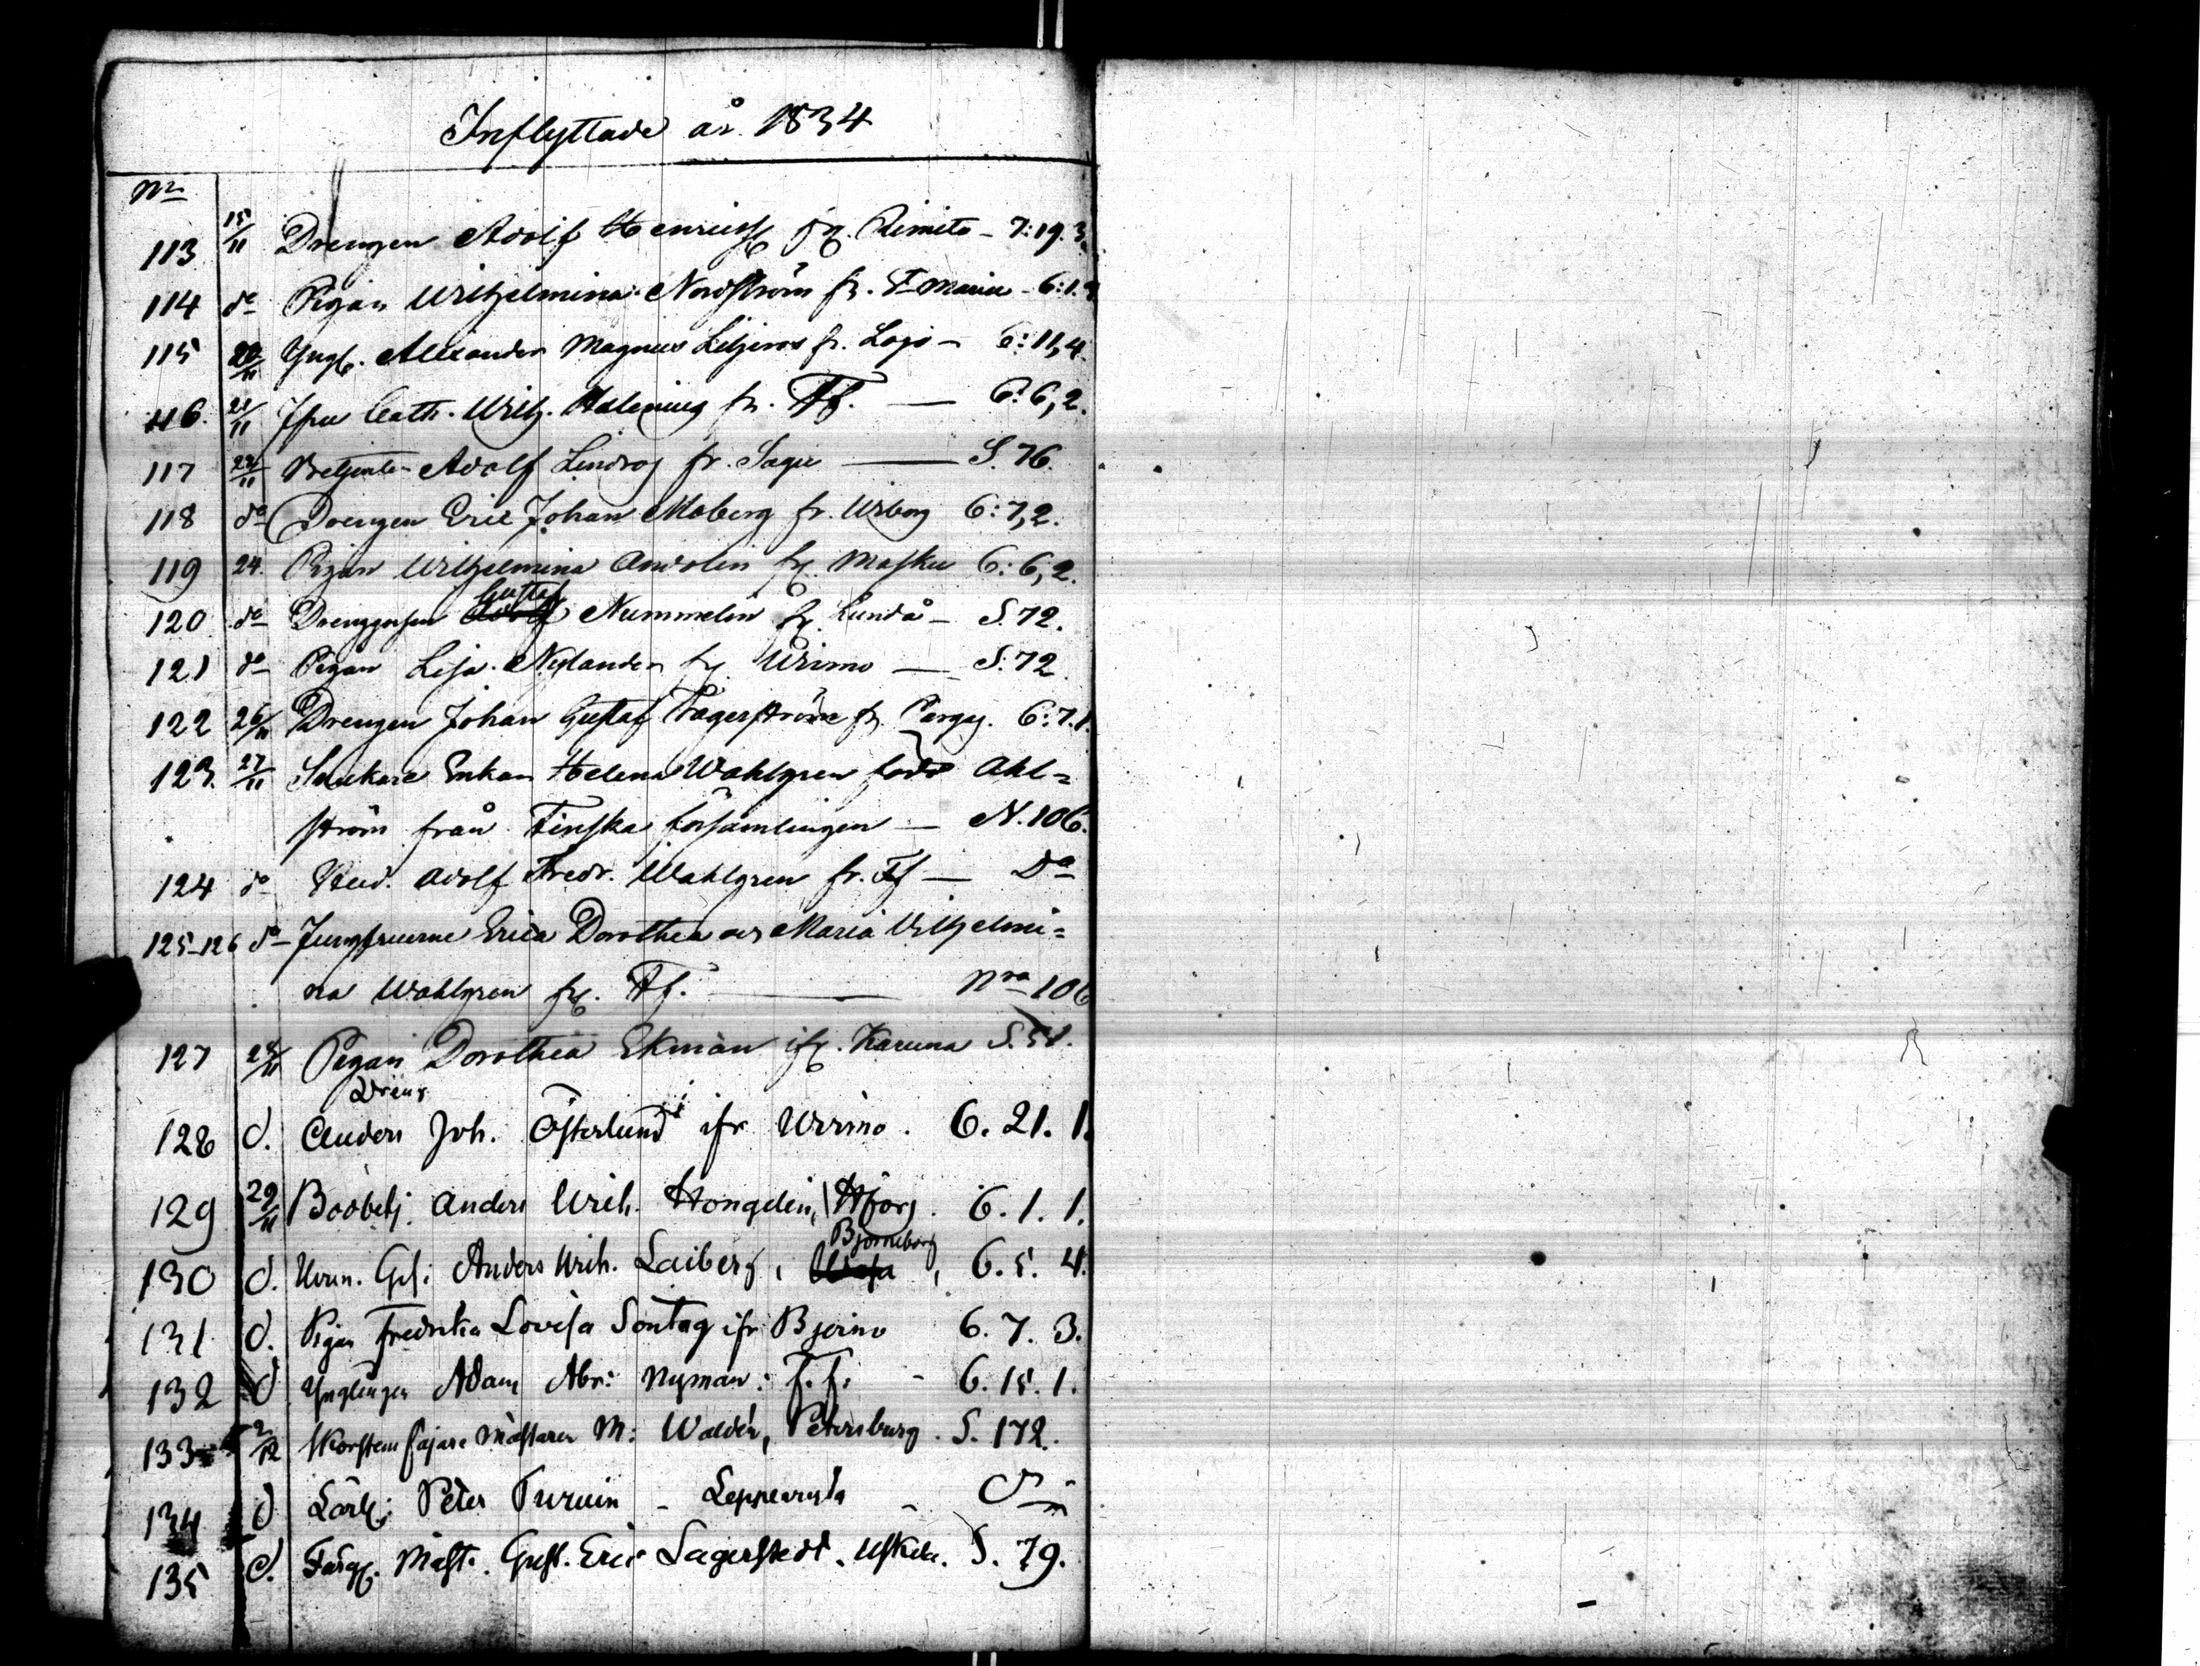 Inflyttade år 1834
No
113 15/11 Drengen Adolf Henricss: fr. Rimito - 7:19.3.
114 do Pigan Wilhelmina Nordström fr. St Marie - 6:1.
115 20/11 Yngl. Alexander Magnus Liljeros fr. Lojo - 6:11,4.
116. 21/11 Jfru Cath. Wilh. Halenius fr. Ff. — 6:6,2.
117 22/11 Adolf Lindros fr. Sagu — S. 76.
118 do Drengen Eric Johan Moberg fr. Wiborg 6:7,2.
119 24. Pigan Wilhelmina Andolin fr. Masku 6:6,2.
120 do Drenggossen Gustaf Nummelin fr. Lundå - S. 72.
121 do Pigan Lisa Nylander fr. Wirmo — S. 72.
122 26/11 Drengen Johan Gustaf Fagerström fr. Pargas. 6:7.1.
123. 27/11 Enkan Helena Wahlgren född Ahl=
ström från Finska församlingen — N. 106.
124 do Stud. Adolf Fredr. Wahlgren fr. Ff — Do
125-126 do Jungfruerne Erica Dorothea och Maria Vilhelmi=
na Wahlgren fr. Ff. — Nro 106
127 28/11 Pigan Dorothea Ekman ifr. Karuna S. 51.
Dreng
128 d. Anders Joh. Österlund ifr Wirmo. 6. 21. 1.
129 29/11 Bodbetj. Anders Wilh. Hongelin, Hfors. 6. 1. 1.
Björneborg
130 d. Urm. Ges: Anders Wilh. Laiberg, Wasa, 6. 5. 4.
131 d. Pigan Fredrika Lovisa Sontag ifr Bjerno 6. 7. 3.
132 d Ynglingen Adam Abr: Nyman: f. f. - 6. 15. 1.
133 2/12 Skorstens fejare Mästaren M: Waldén, Petersburg. S. 172.
134 d Lärl: Peter Turuin - Leppevirta - do
135 d. Färg. Mäst. Gust. Eric Lagerstedt. Uskela. S. 79.